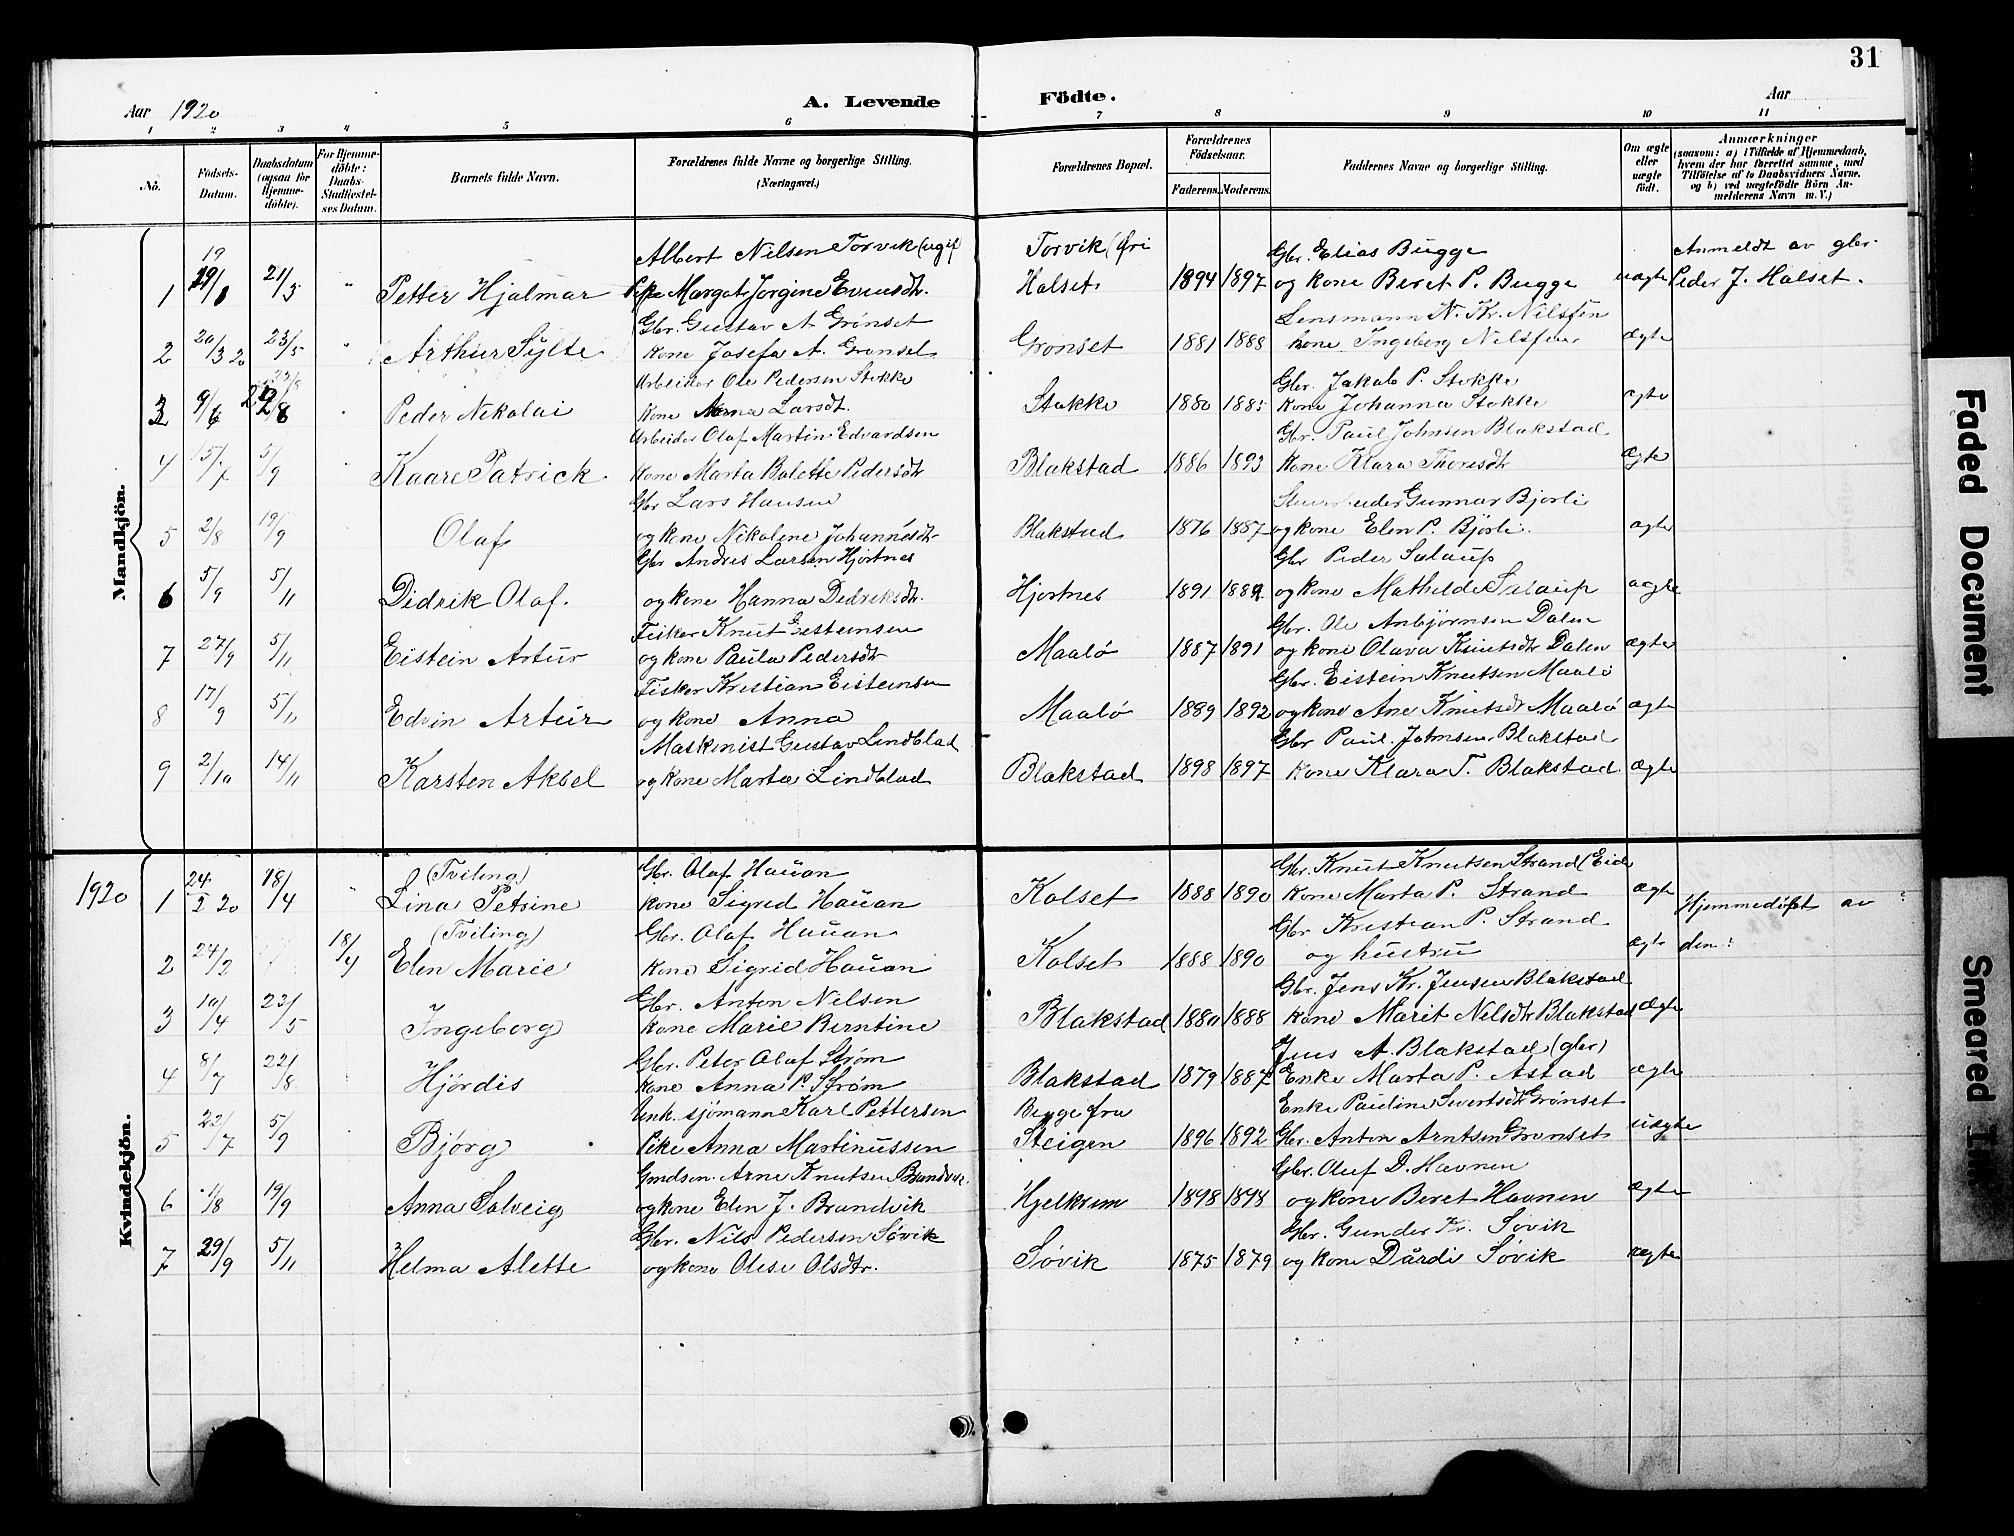 31
Aar 1920 A. Levende Födte. Aar
1 2 3 4 5 6 7 8 9 10 11
No. Födsels-Datum. Daabsdatum (ogsaa for Hjemme-döbte). For Hjemme-döbte: Daabs-Stadfæstel-ses Datum. Barnets fulde Navn. Forældrenes fulde Navne og borgerlige Stilling. (Næringsvei.) Forældrenes Bopæl. Forældrenes Födselsaar. Faderens. Moderens. Faddernes Navne og borgerlige Stilling. Om ægte eller uægte födt. Anmærkninger (saasom: a) i Tilfælde af Hjemmedaab, hvem der har forrettet samme, med Tilföielse af to Daabsvidners Navne, og b) ved uægtefödte Börn An-melderens Navn m. V.)
Mandkjön.
19 Albert Nilsen Torvik (ugif) Torvik (Øri Gbr. Elias Bugge Anmeldt av gbr.
1 21/3 " Petter Hjalmar Pike Margot Jorgine Evensdtr. Halset 1894 1897 og kone Beret P. Bugge uægte Peder J. Halset.
Gbr. Gustav A Grønset Lensmann N. Kr. Nilssen
2 20/3 20 23/5 " Arthur Sylte kone Josefa A. Grønset Grønset 1881 1888 kone Ingeberg Nilssen ægte
Arbeider Ole Pedersen Stokke Gbr. Jakob P. Stokke
3 9/6 22/8 Peder Nikolai kone Anna Larsdt. Stokke 1880 1885 kone Johanna Stokke ægte
Arbeider Olaf Martin Edvardsen Gbr. Paul Johnsen Blakstad
4 15/7 5/9 Kaare Patrick kone Marta Balette Pedersdtr Blakstad 1886 1893 kone Klara Thoresdtr ægte
Gbr Lars Hansen Gunnar Bjørli
5 2/8 19/9 Olaf og kone Nikoline Johannesdtr Blakstad 1876 1887 og kone Elen P. Bjørli. ægte
Gbr Andres Larsen Hjortnes Gbr Peder Salaup
6 5/9 5/11 Didrik Olaf. og kone Hanna Dedreksdtr. Hjortnes 1891 1889 og kone Mathilde Salaup ægte
Fisker Knut Eisteinsen Gbr. Ole Anbjørnsen Dalen
7 27/9 5/11 Eistein Artur og kone Paula Pedersdtr Maalø 1887 1891 og kone Olava Knutsdtr Dalen ægte
Fisker Kristian Eisteinsen Gbr. Eistein Knutsen Maalø
8 17/9 5/11 Edvin Artur og kone Anna Maalø 1889 1892 og kone Ane Knutsdtr Maalø ægte
Maskinist Gustav Lindblad Gbr Paul Johnsen Blakstad
9 2/10 14/11 Karsten Aksel og kone Marta Lindblad Blakstad 1898 1897 kone Klara T. Blakstad ægte
Kvindekjön.
(Tviling) Gbr. Olaf Hauan Gbr. Knut Knutsen Strand (Eide
1920 1 24/2 20 18/4 " Lina Petrine kone Sigrid Hauan Kolset 1888 1890 kone Marta P. Strand ægte Hjemmedöpt av
(Tviling) Gbr. Olaf Hauan Gbr Kristian P. Strand
2 24/2 18/4 Elen Marie kone Sigrid Hauan Kolset 1888 1890 og hustru ægte den:
Gbr. Anton Nilsen Gbr. Jens Kr. Jensen Blakstad
3 10/4 23/5 Ingeborg kone Marie Berntine Blakstad 1880 1888 kone Marit Nilsdtr Blakstad ægte
Gbr. Peter Olaf Strøm Jens A. Blakstad (gbr)
4 8/7 22/8 Hjørdis kone Anna P. Strøm Blakstad 1879 1887 Enke Marta P. Astad ægte
Unk. sjömann Karl Pettersen Begge fra Enke Pauline Sivertsdtr Grønset
5 23/7 5/9 Bjørg Pike Anna Martinussen Steigen 1896 1892 Gbr. Anton Arntsen Grønset uægte
Gmdsen. Arne Knutsen Brandvik Gbr. Oluf D. Havnen
6 1/8 19/9 Anna Solveig og kone Elen J. Brandvik Hjelkrem 1898 1898 og kone Beret Havnen ægte
Gbr. Nils Pedersen Søvik Gbr. Gunder Kr. Søvik
7 29/9 5/11 Helma Alette og kone Olese Olsdtr. Søvik 1875 1879 og kone Dårdi Søvik ægte
Faded Document
Smeared Ink